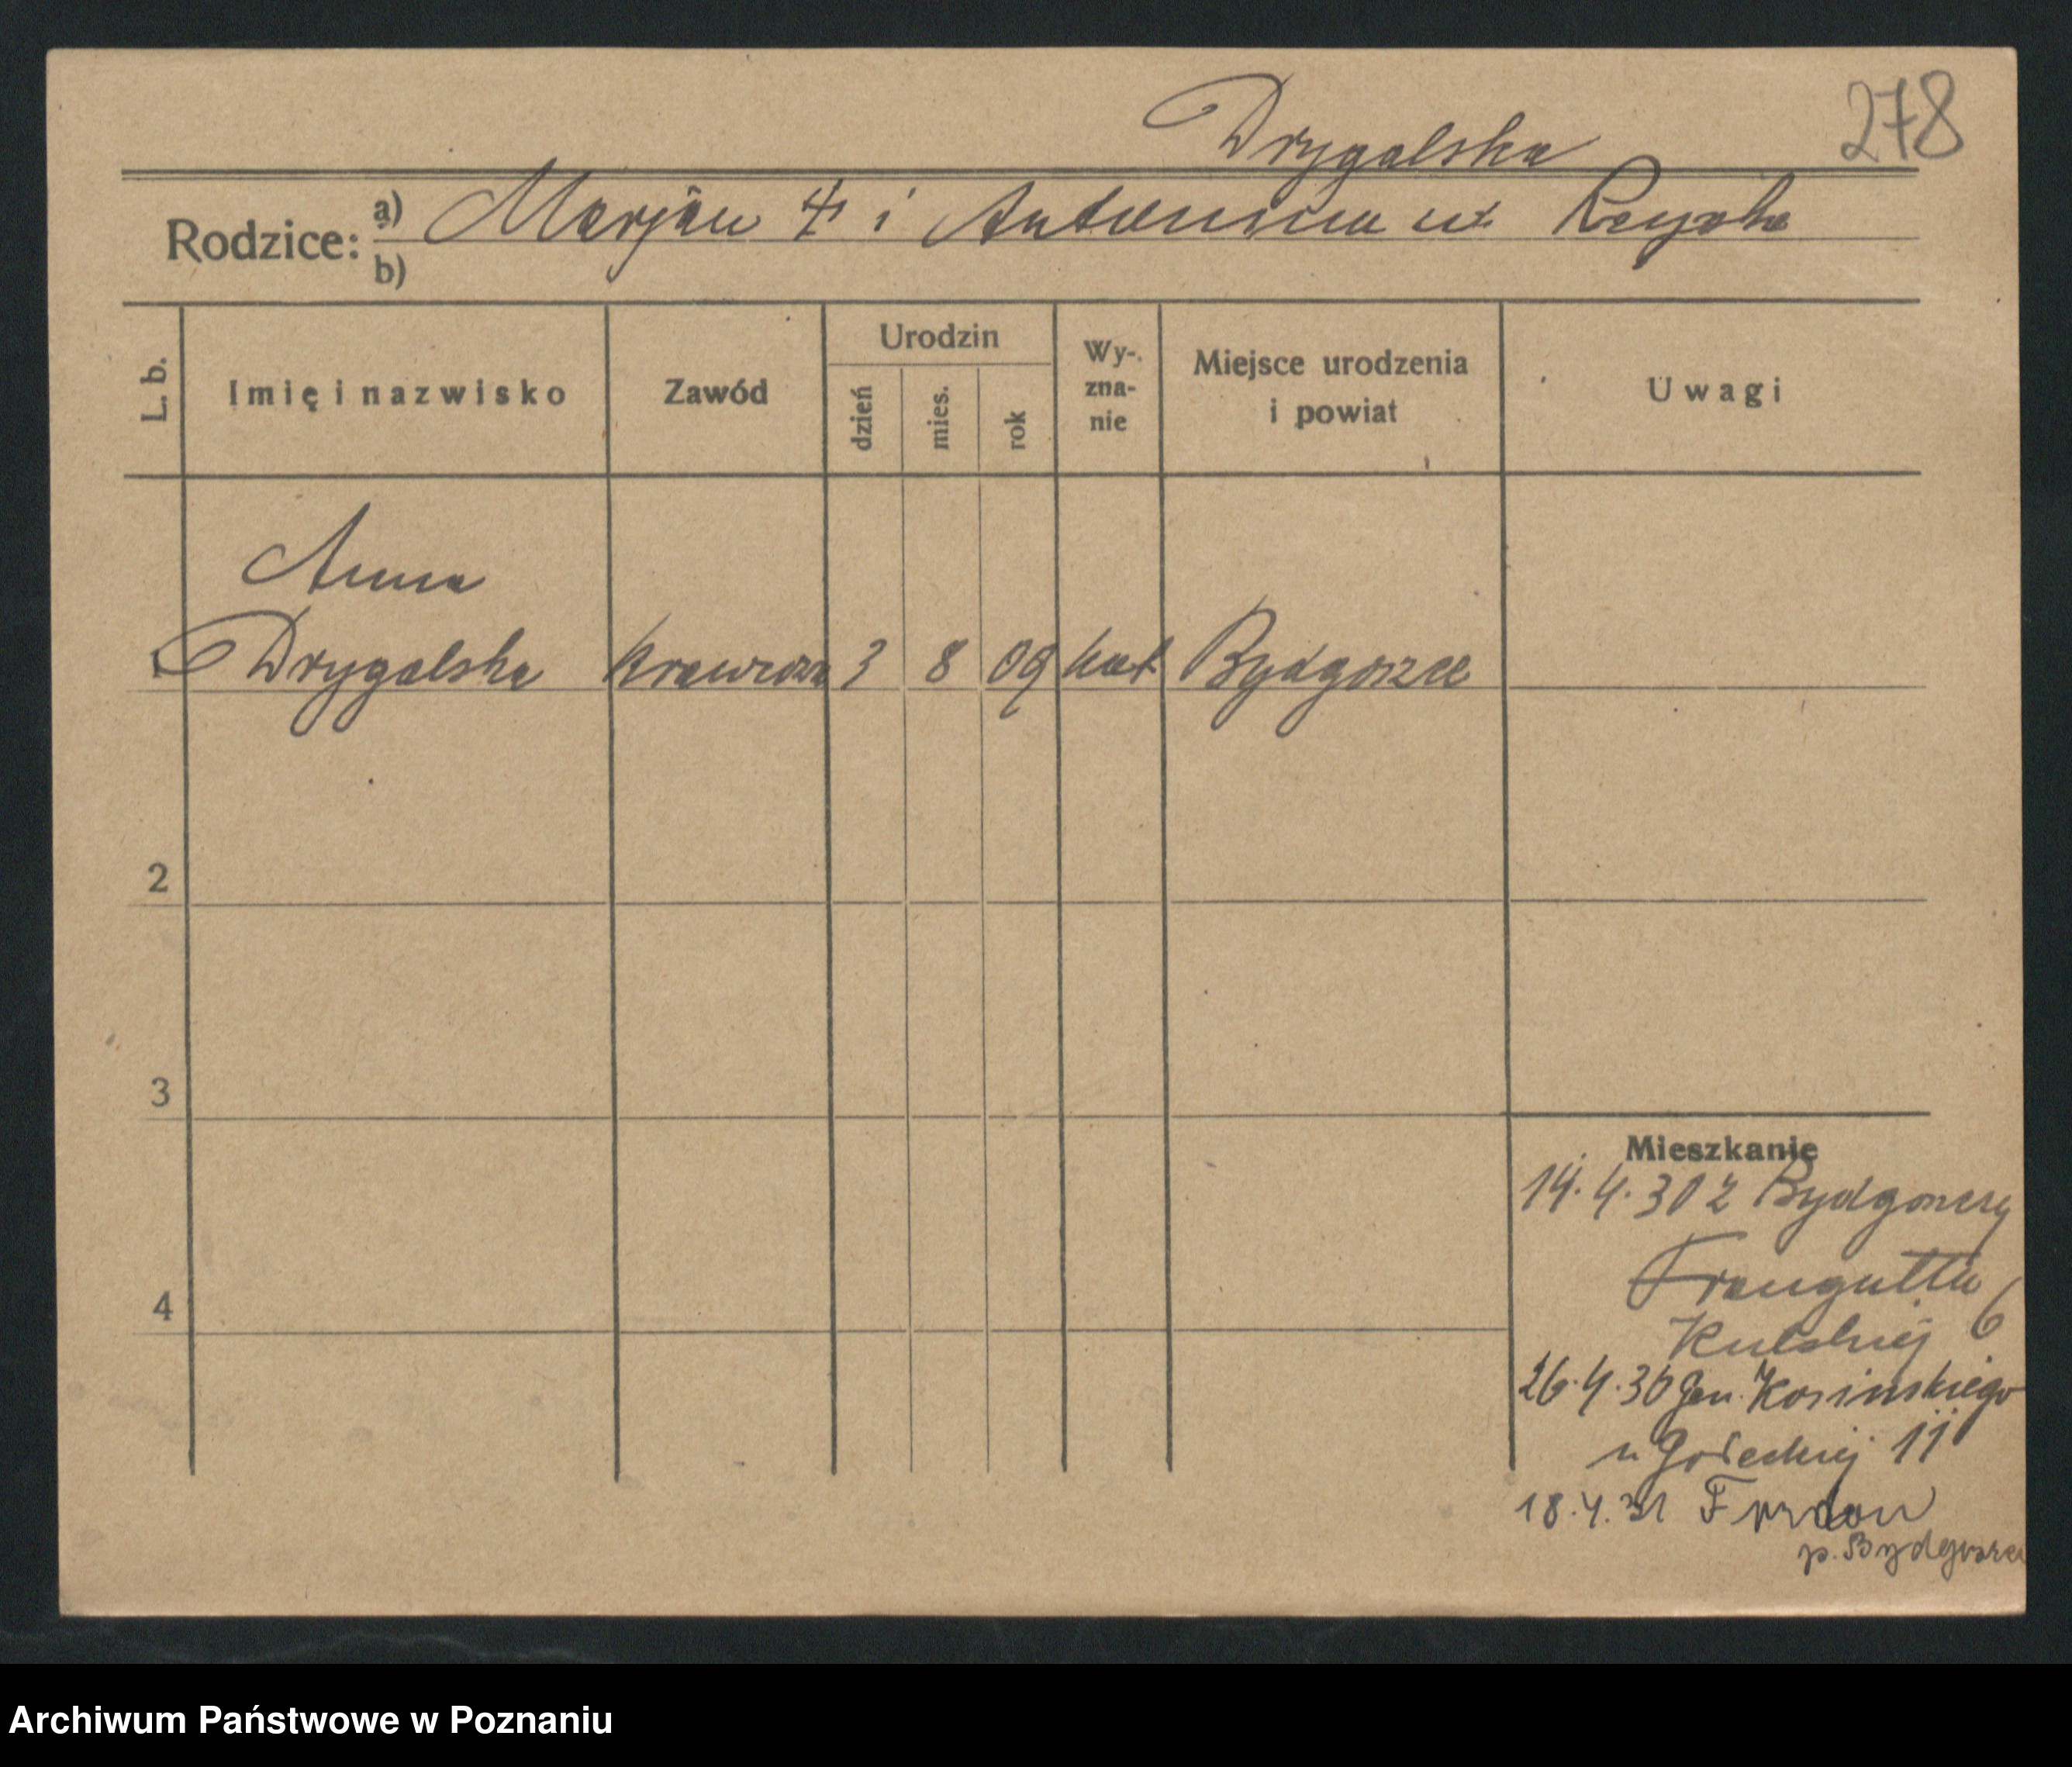 278
Drygalska
Rodzice: a) Marjan † i Antonina ur.
b)
L. b.
Imię i nazwisko
Zawód
Urodzin
dzień
mies.
rok
Wy-
zna-
nie
Miejsce urodzenia
i powiat
Uwagi
Anna
1 Drygalska krawcowa 3 8 09 kat Bydgoszcz
2
3
4
Mieszkanie
14.4.30 z Bydgoszczy
Traugutta 6
26.4.30 Gen. Kosinskiego
11
18.4.31 Fordon
p. Bydgoszcz
Archiwum Państwowe w Poznaniu